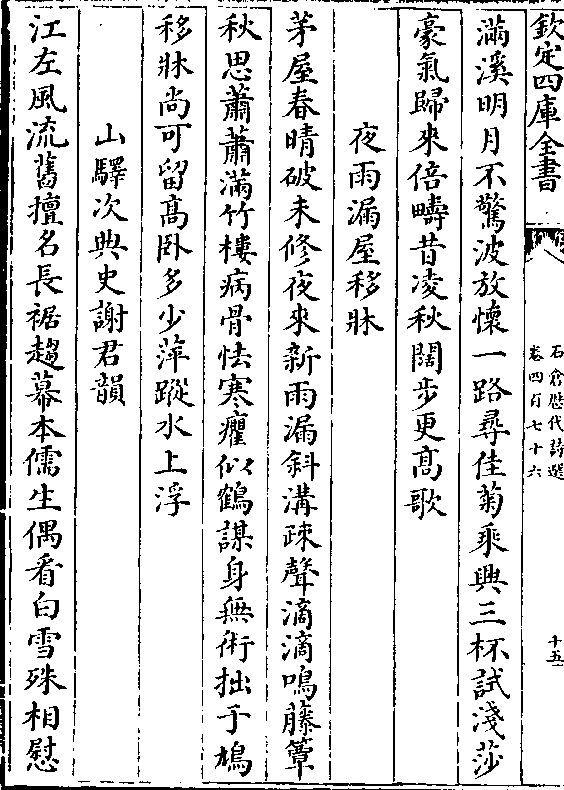 欽定四庫全書
石倉歷代詩選
卷四百七十六
十五
滿溪明月不驚波放懷一路尋佳菊乘興三杯試淺莎
豪氣歸來倍疇昔凌秋闊步更髙歌
夜雨漏屋移牀
茅屋春晴破未修夜來新雨漏斜溝疎聲滴滴鳴藤簟
秋思蕭蕭滿竹樓病骨怯寒癯似鶴謀身無術拙于鳩
移牀尚可留髙卧多少萍蹤水上浮
山驛次典史謝君韻
江左風流舊擅名長裾趨幕本儒生偶看白雪殊相慰